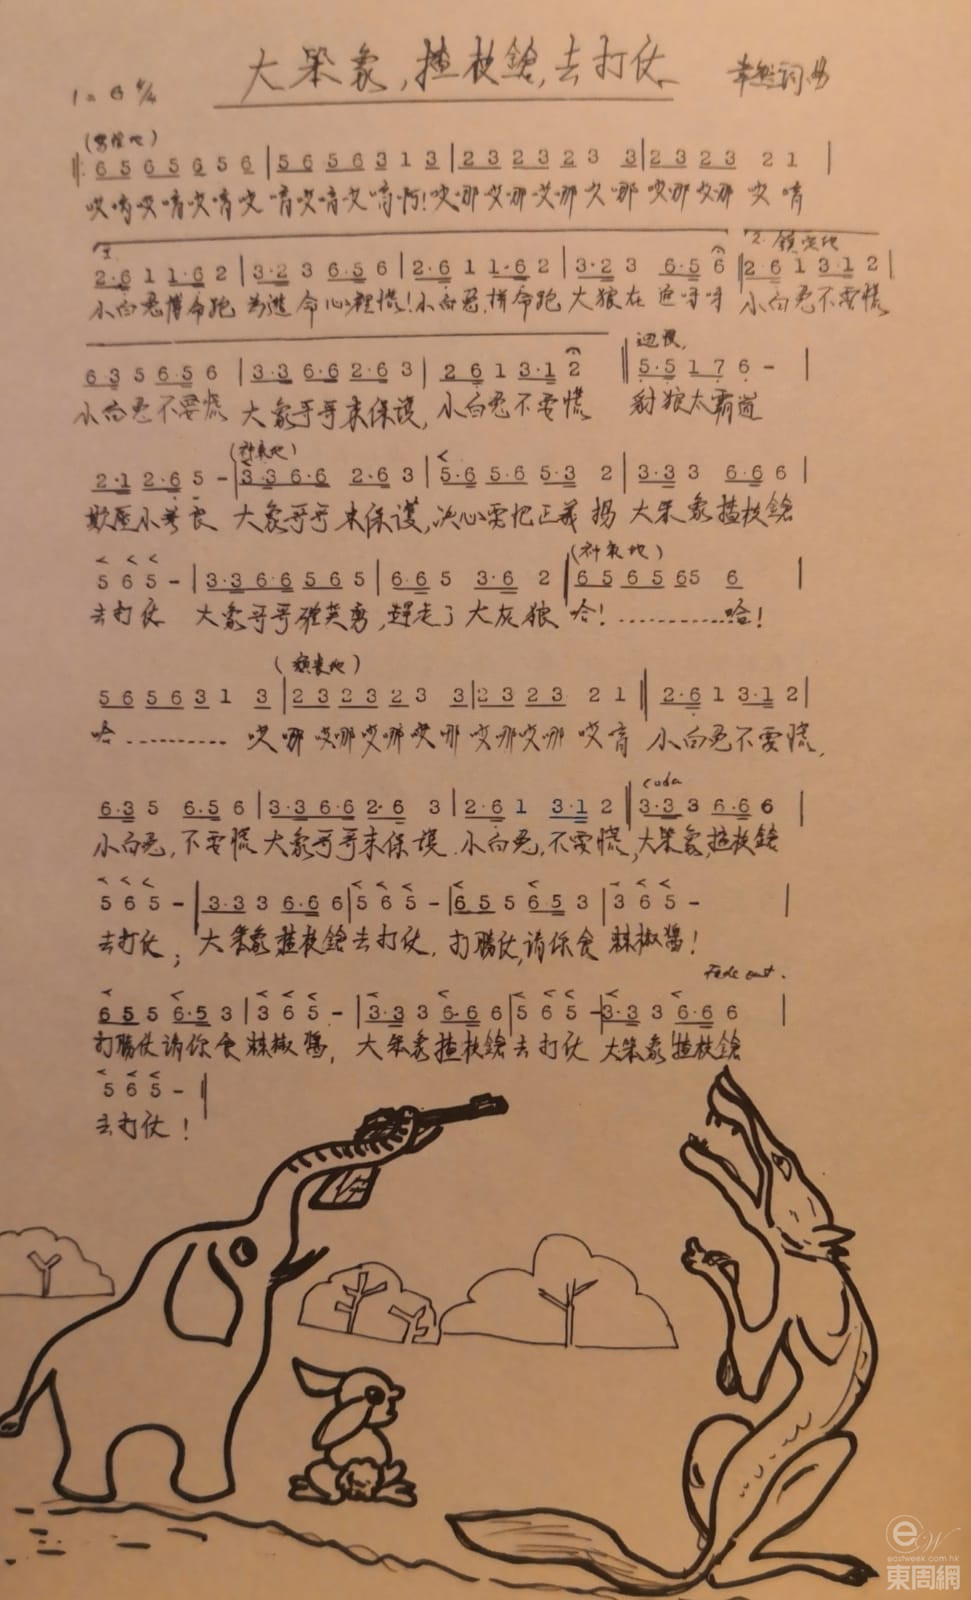 大笨象,揸枝鎗,去打仗
詞曲
6 5 6 5 6 5 6 | 5 6 5 6 3 1 3 | 2 3 2 3 2 3 3 | 2 3 2 3 2 1 |
哎唷哎唷哎唷哎 唷哎唷哎唷啊!哎哪哎哪哎哪哎哪 哎哪哎哪 哎唷
2·6 1 1·6 2 | 3·2 3 6·5 6 | 2·6 1 1·6 2 | 3·2 3 6·5 6 | 2·6 1 3·1 2 |
小白兔 命跑 為逃命心裡慌!小白兔,拼命跑 大狼在 小白兔不要慌
6 3 5 6·5 6 | 3·3 6·6 2·6 3 | 2 6 1 3·1 2 | 5·5 1 7 6 – |
小白兔不要慌 大象哥哥來保護,小白兔不要慌 豺狼太霸道
2·1 2·6 5 – | 3·3 6·6 2·6 3 | 5·6 5·6 5·3 2 | 3·3 3 6·6 6 |
欺壓小善良 大象哥哥來保護,決心要把正義揚 大笨象揸枝鎗
5 6 5 – | 3·3 6·6 5 6 5 | 6·6 5 3·6 2 | 6 5 6 5 6 5 6 |
去打仗 大象哥哥確英勇,趕走了大灰狼 哈!............哈!
5 6 5 6 3 1 3 | 2 3 2 3 2 3 3 | 2 3 2 3 2 1 || 2·6 1 3·1 2 |
哈............ 哎哪哎哪哎哪哎哪 哎哪哎哪 哎唷 小白兔不要慌,
coda
6·3 5 6·5 6 | 3·3 6·6 2·6 3 | 2·6 1 3·1 2 || 3·3 3 6·6 6 |
小白兔,不要慌 大象哥哥來保護.小白兔,不要慌,大笨象,揸枝鎗
5 6 5 – | 3·3 3 6·6 6 | 5 6 5 – | 6 5 5 6·5 3 | 3 6 5 – |
去打仗; 大笨象揸枝鎗去打仗.打勝仗,請你食 辣椒醬!
Fade out.
6 5 5 6·5 3 | 3 6 5 – | 3·3 3 6·6 6 | 5 6 5 – | 3·3 3 6·6 6 |
打勝仗請你食 辣椒醬, 大笨象揸枝鎗去打仗 大笨象揸枝鎗
5 6 5 – ||
去打仗!
eastweek.com.hk
東周網